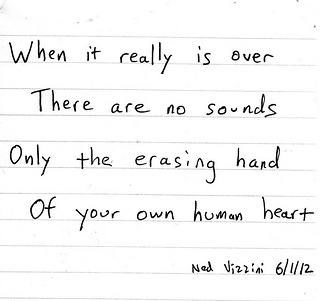 When it really is over
There are no sounds
Only the erasing hand
Of your own human heart
Ned Vizzini 6/1/12